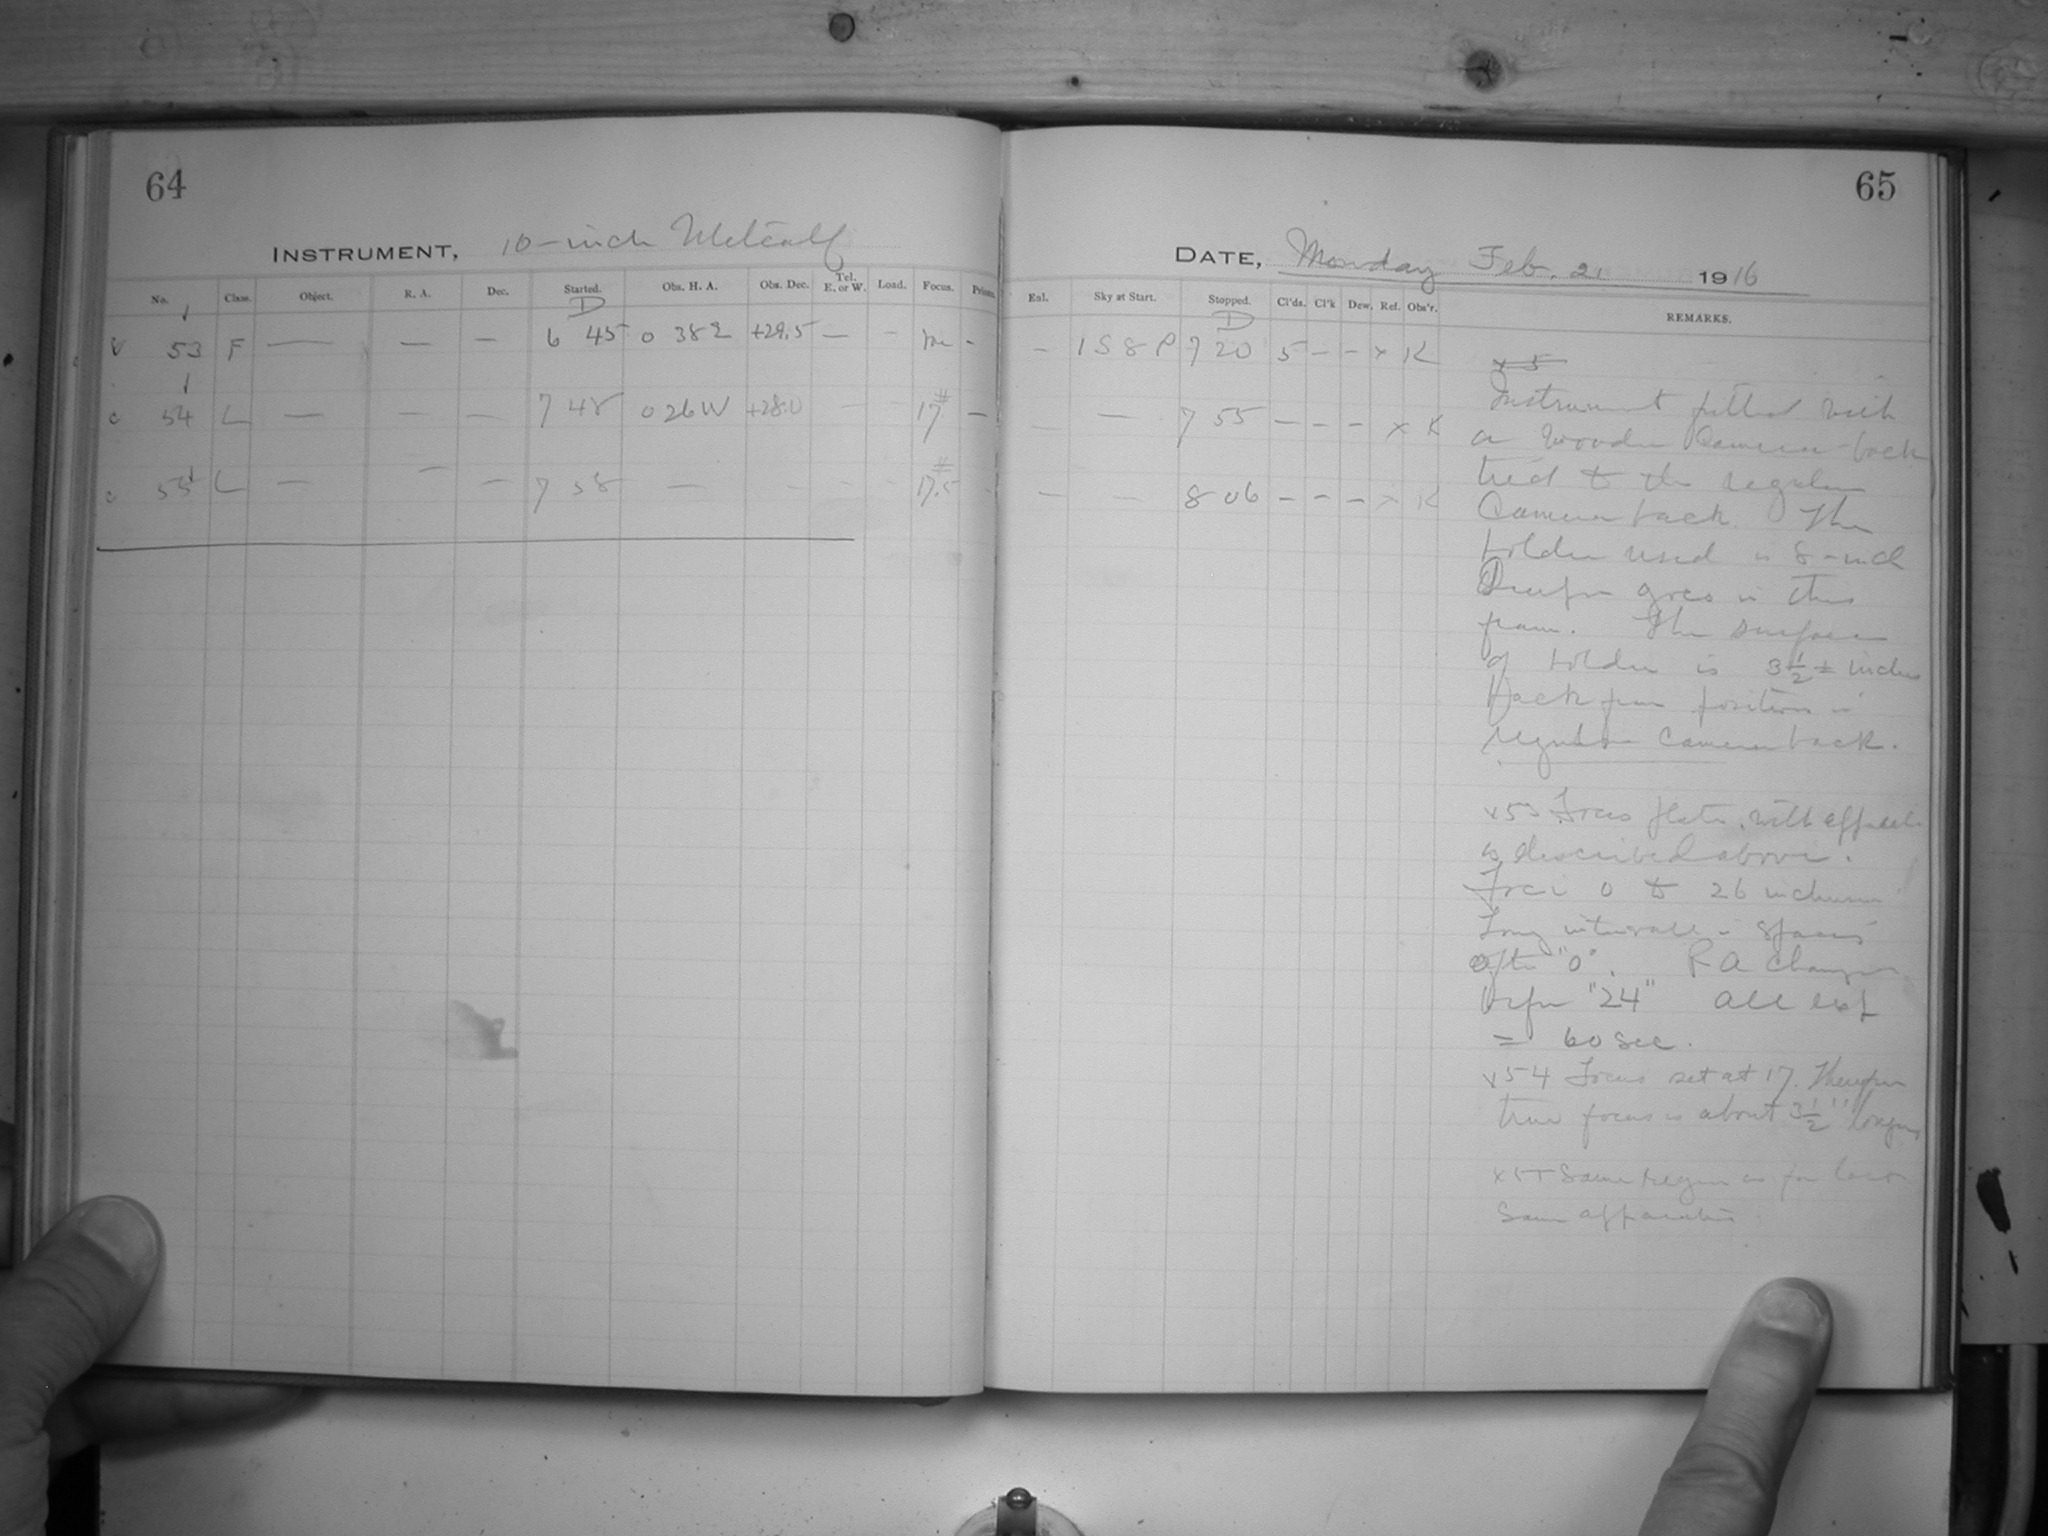 64
INSTRUMENT, 10-inch Metcalf
No. Class. Object. R. A. Dec. Started. Obs. H. A. Obs. Dec. Tel. E. or W. Load. Focus. Prism.
D
53 F — — — 6 45 0 38 E +29.5 — - -
54 L — — — 7 48 0 26 W +28.0 — - 17 —
55 L — — — 7 58 — - - - 17.5 -
65
DATE, Monday Feb. 21 1916
Eal. Sky at Start. Stopped. Cl'ds. Cl'k Dew. Ref. Obs'r. REMARKS.
D
— 1 S 8 P 7 20 5 — — x K
— — 7 55 — — — x K
— — 8 06 — — — x K
x 5
Instrument fitted with
a wooden camera-back
tied to the regular
Camera back. The
holder used in 8-inch
Draper goes in this
frame. The surface
of holder is 3 1/2 ± inches
back from position in
regular camera back.
x53 Focus plate, with apparatus
as described above.
Foci 0 to 26 inclusive
Long intervals in spaces
after "0". R A changes
before "24" All exp
= 60 sec.
x54 Focus set at 17. Therefore
true focus is about 3 1/2" longer
x55 Same region as for last
Same apparatus